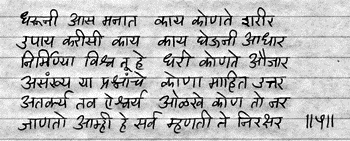 धरूनी आस मनात काय कोणते शरीर
उपाय करीसी काय काय घेऊनी आधार
निर्मिण्या विश्व तू हे धरी कोणते औजार
असंख्य या प्रश्नांचे कोणा माहित उत्तर
अतर्क्य तव ऐश्वर्य ओळखे कोण तो नर
जाणतो आम्ही हे सर्व म्हणती ते निरक्षर ॥५॥